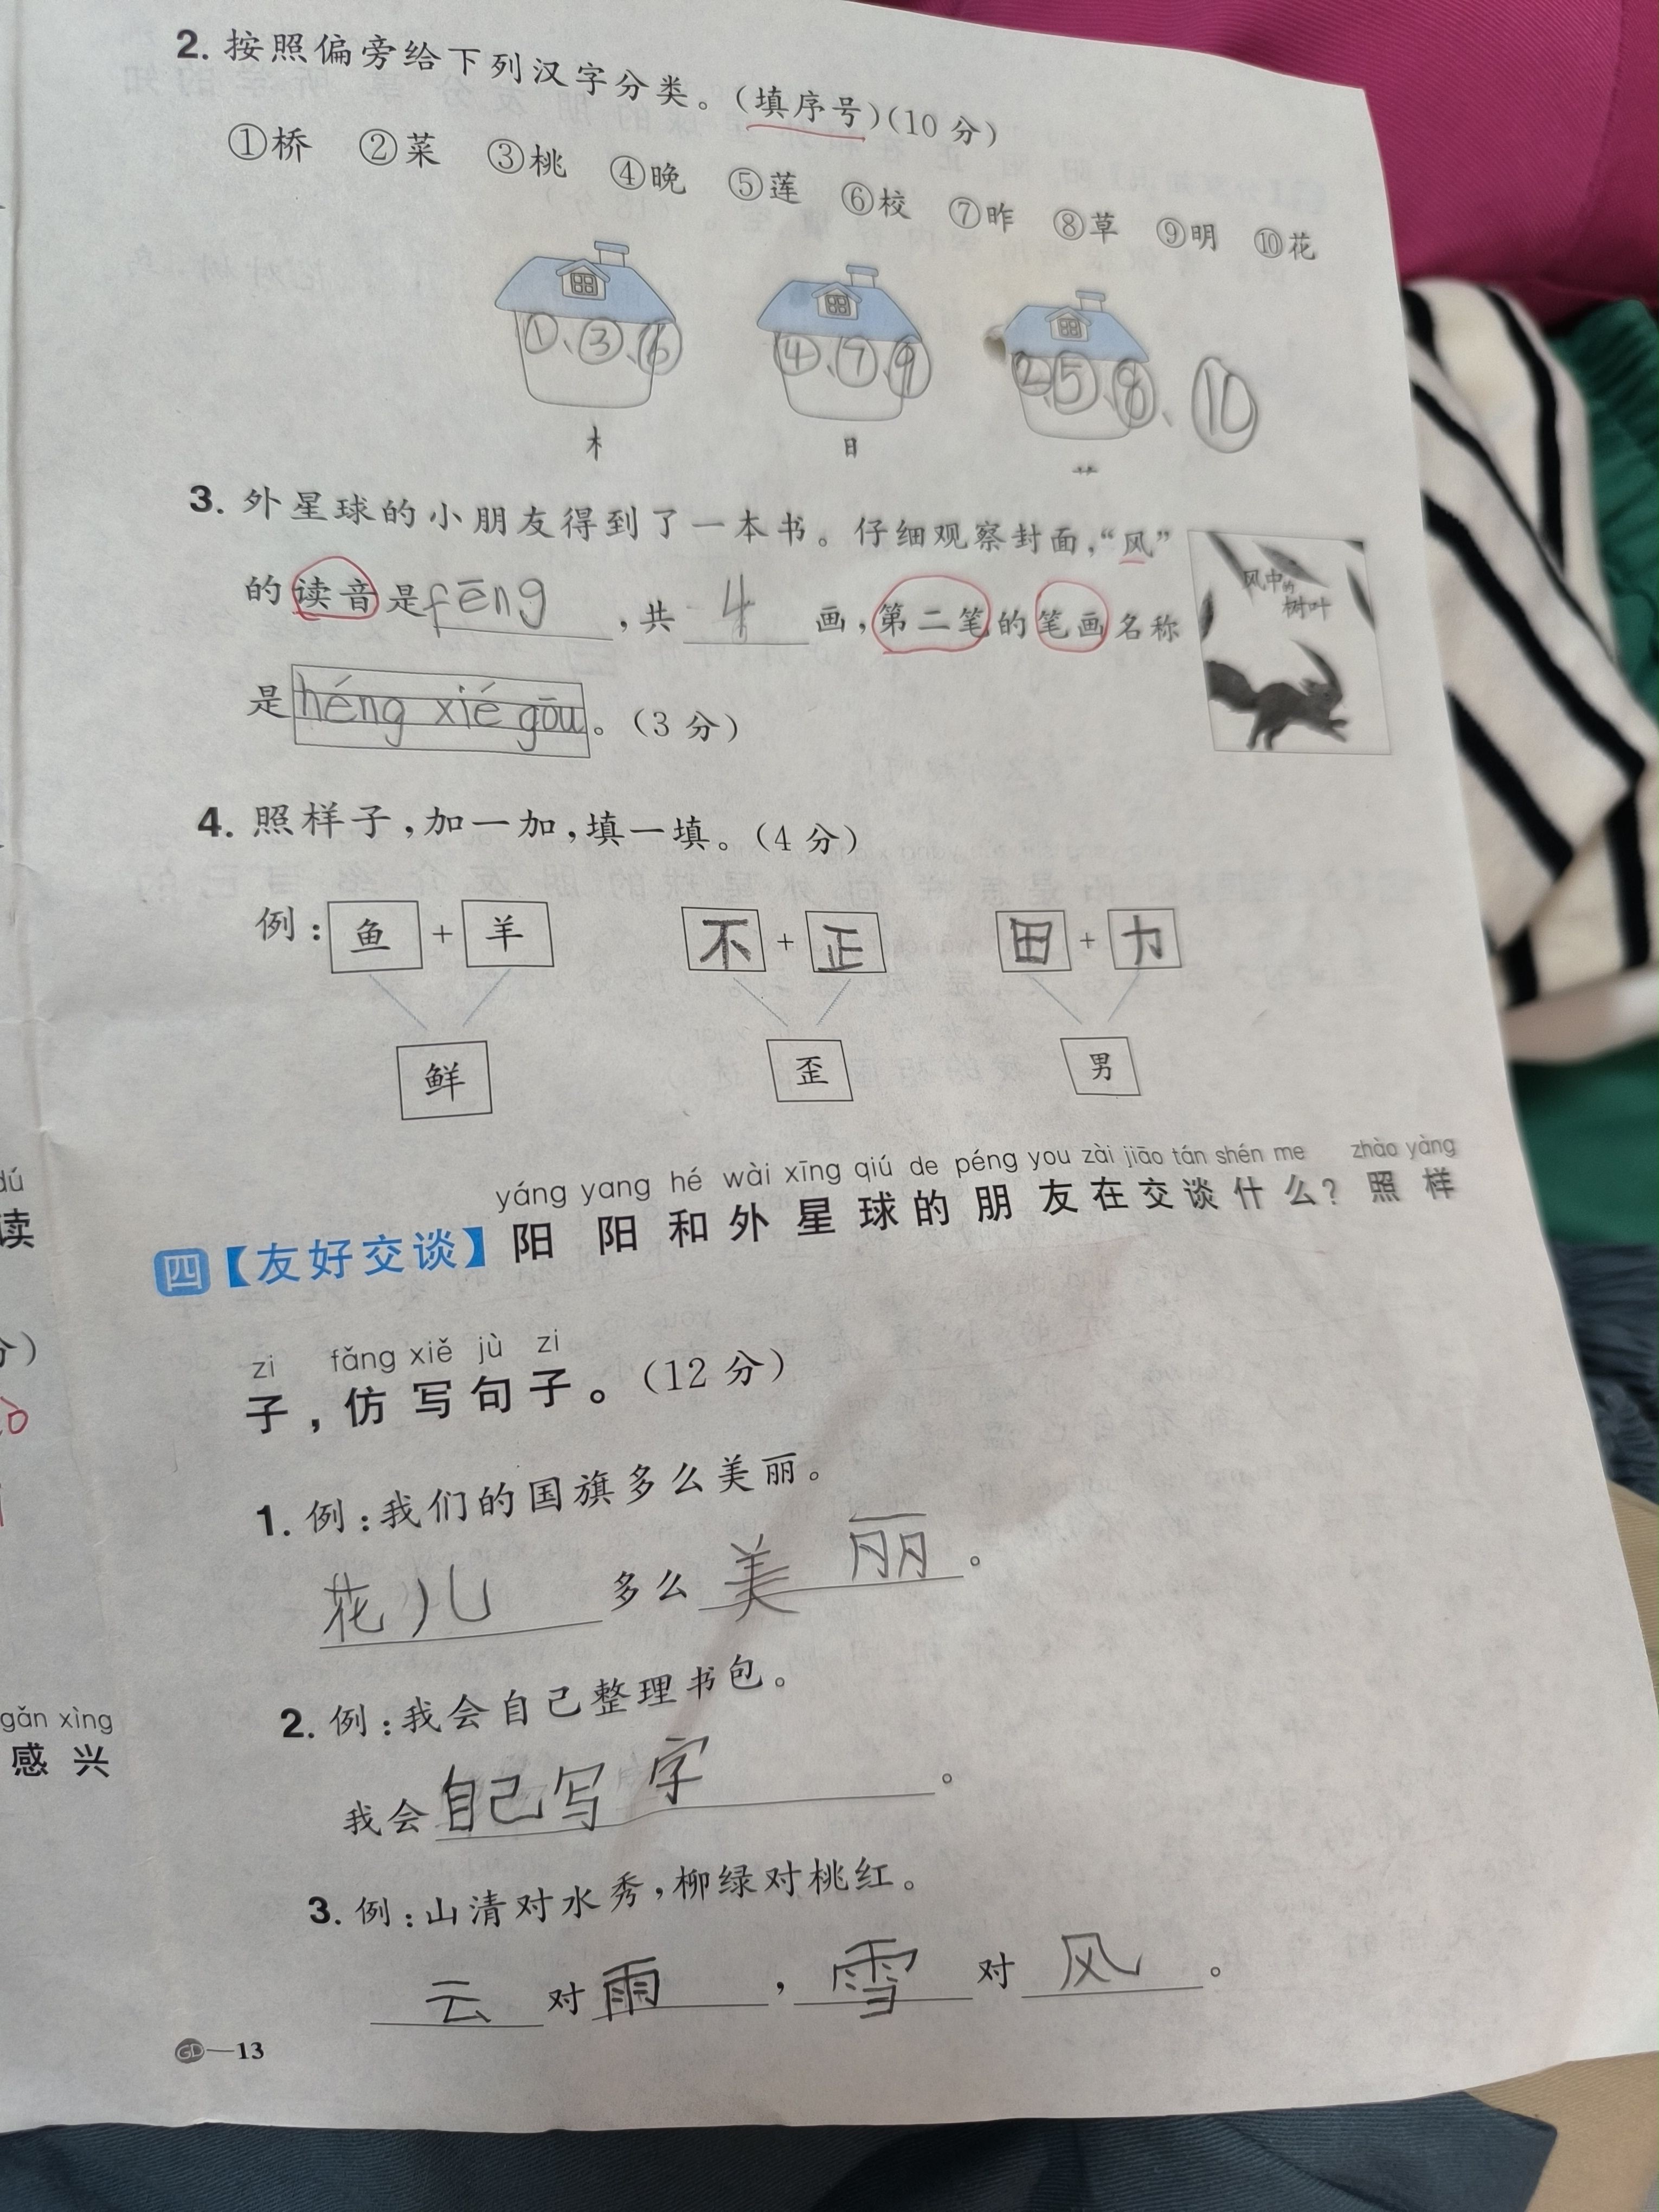 2. 按照偏旁给下列汉字分类。(填序号)(10 分)
①桥 ②菜 ③桃 ④晚 ⑤莲 ⑥校 ⑦昨 ⑧草 ⑨明 ⑩花
①、③、⑥ ④、⑦、⑨ ②、⑤、⑧、⑩
木 日 艹
3. 外星球的小朋友得到了一本书。仔细观察封面,“风”
风中的
树叶
的读音是 fēng ,共 4 画,第二笔的笔画名称
是 héng xié gōu 。(3 分)
4. 照样子,加一加,填一填。(4 分)
例: 鱼 + 羊 不 + 正 田 + 力
鲜 歪 男
yáng yang hé wài xīng qiú de péng you zài jiāo tán shén me zhào yàng
四【友好交谈】阳阳和外星球的朋友在交谈什么?照样
zi fǎng xiě jù zi
子,仿写句子。(12 分)
1. 例:我们的国旗多么美丽。
花儿 多么 美丽 。
2. 例:我会自己整理书包。
我会 自己写字 。
3. 例:山清对水秀,柳绿对桃红。
云 对 雨 , 雪 对 风 。
GD—13
dú
读
分)
gǎn xìng
感兴